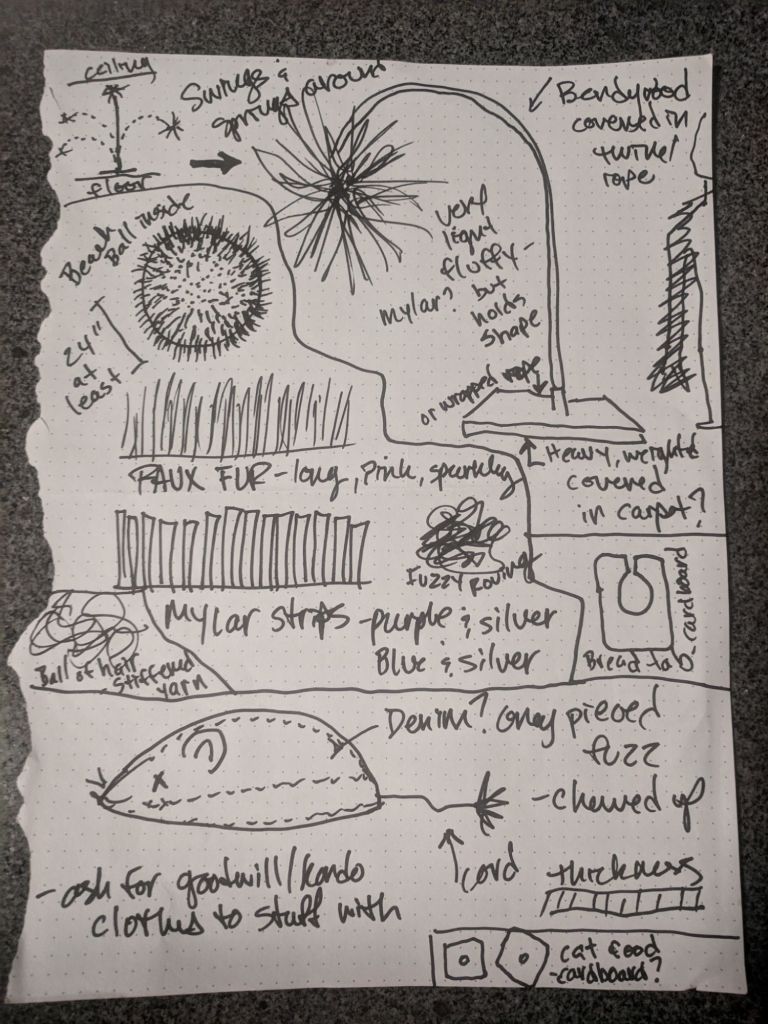 ceiling
floor
Swings &
springs around
Bendy rod
covered in
twine/
rope
Beach
Ball inside
24"
at
least
very
light
fluffy-
mylar? but
holds
shape
or wrapped rope
Heavy, weighted
covered
in carpet?
FAUX FUR - long, pink, sparkly
FUZZY Roving
Mylar strips - purple & silver
Blue & silver
Ball of hair
- stiffened
yarn
Bread tab
- cardboard
Denim? Grey pieced
fuzz
- chewed up
cord
- ask for goodwill/kondo
clothes to stuff with
thickness
cat food
- cardboard?